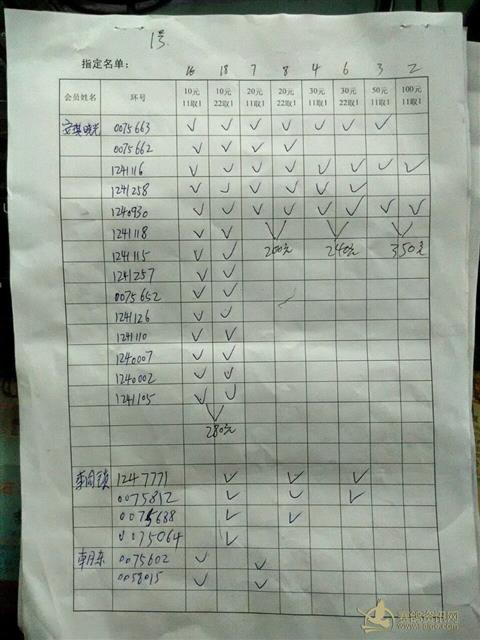 1号
指定名单：
16 18 7 8 4 6 3 2
会员姓名 环号 10元11取1 10元22取1 20元11取1 20元22取1 30元11取1 30元22取1 50元11取1 100元11取1
0075663 ✓ ✓ ✓ ✓ ✓ ✓ ✓
0075662 ✓ ✓ ✓ ✓
1241116 ✓ ✓ ✓ ✓ ✓ ✓ ✓ ✓
1241258 ✓ ✓ ✓ ✓ ✓ ✓
1240930 ✓ ✓ ✓ ✓ ✓ ✓ ✓ ✓
1241118 ✓ ✓
1241115 ✓ ✓ 200元 240元 350元
1241257 ✓ ✓
0075652 ✓ ✓
1241126 ✓ ✓
1241110 ✓ ✓
1240007 ✓ ✓
1240002 ✓ ✓
1241105 ✓ ✓
280元
1247771 ✓ ✓ ✓
0075812 ✓ ✓ ✓
0075688 ✓ ✓
0075064 ✓
0075602 ✓ ✓
0058015 ✓ ✓
赛鸽资讯网